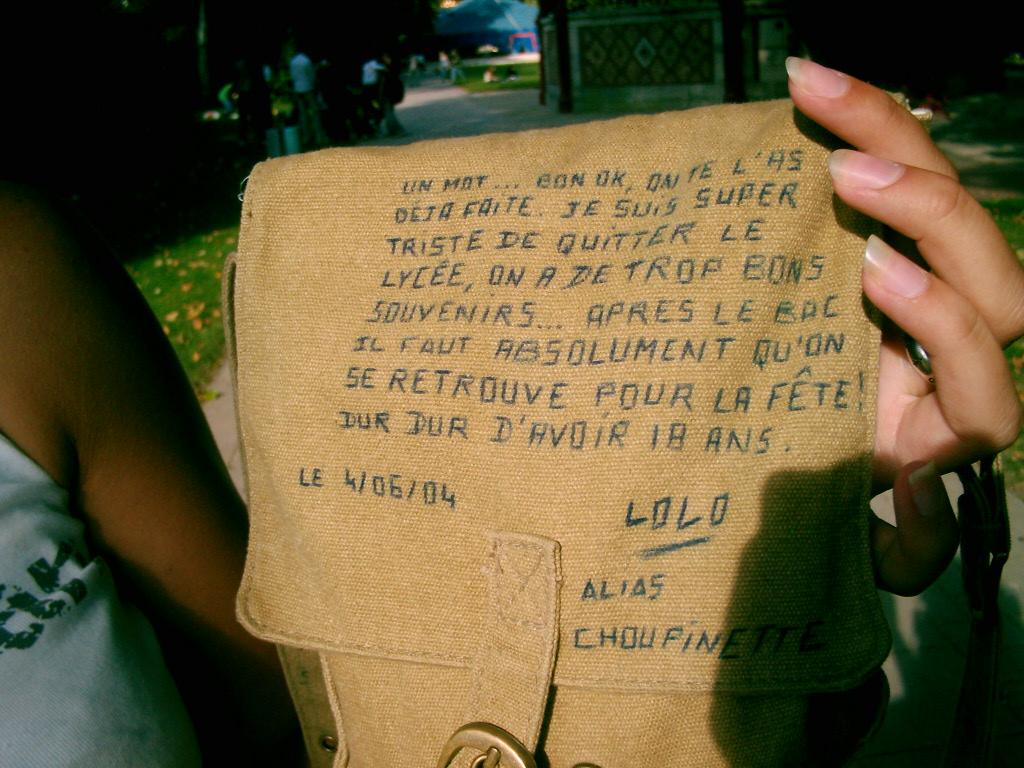 UN MOT... BON OK, ON TE L'AS
DÉJÀ FAITE. JE SUIS SUPER
TRISTE DE QUITTER LE
LYCÉE, ON A DE TROP BONS
SOUVENIRS... APRES LE BAC
IL FAUT ABSOLUMENT QU'ON
SE RETROUVE POUR LA FÊTE!
DUR DUR D'AVOIR 18 ANS.
LE 4/06/04
LOLO
ALIAS
CHOUPINETTE